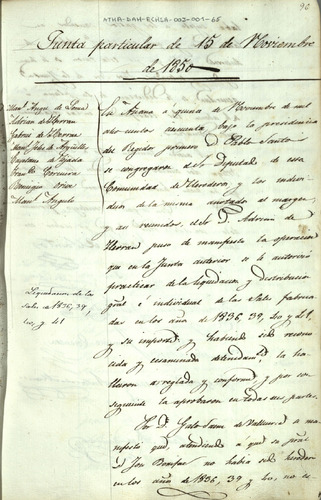 96
ATHA-DAH-ECHSA-002-001-65
Junta particular de 15 de Noviembre
de 1850
Man.l Angel de Lema
Adrian de Herran
Gabriel de Herran
Man.l Jph. de Argüelles
Cayetano de Tejada
Benigno Orive
Man.l Angulo
En Añana á quince de Noviembre de mil
ocho cientos cincuenta bajo la presidencia
del Regidor primero D. Pablo Santo
se congregaron el Sr. Diputado de esta
Comunidad de Herederos, y los indivi-
duos de la misma anotados al margen,
y asi reunidos, el Sr. D. Adrian de
Herran puso de manifiesto la operacion
que en la Junta anterior se le autorizó
practicar de la liquidacion y distribucion
gral. é individual de las Sales fabrica-
das en los años de 1836, 39, 40 y 41, y
su importe; y habiendo sido recono-
cida y examinada detenidam.te la ha-
llaron arreglada y conforme y por con-
siguiente la aprobaron en todas sus partes.
Liquidacion de las
Sales de 1836, 39,
40, y 41
El Sr. D. Jaime de ma-
nifestó que, atendiendo á que su pral.
D. José Bonifaz no habia sido heredero
en los años de 1836, 39 y 40, no es-